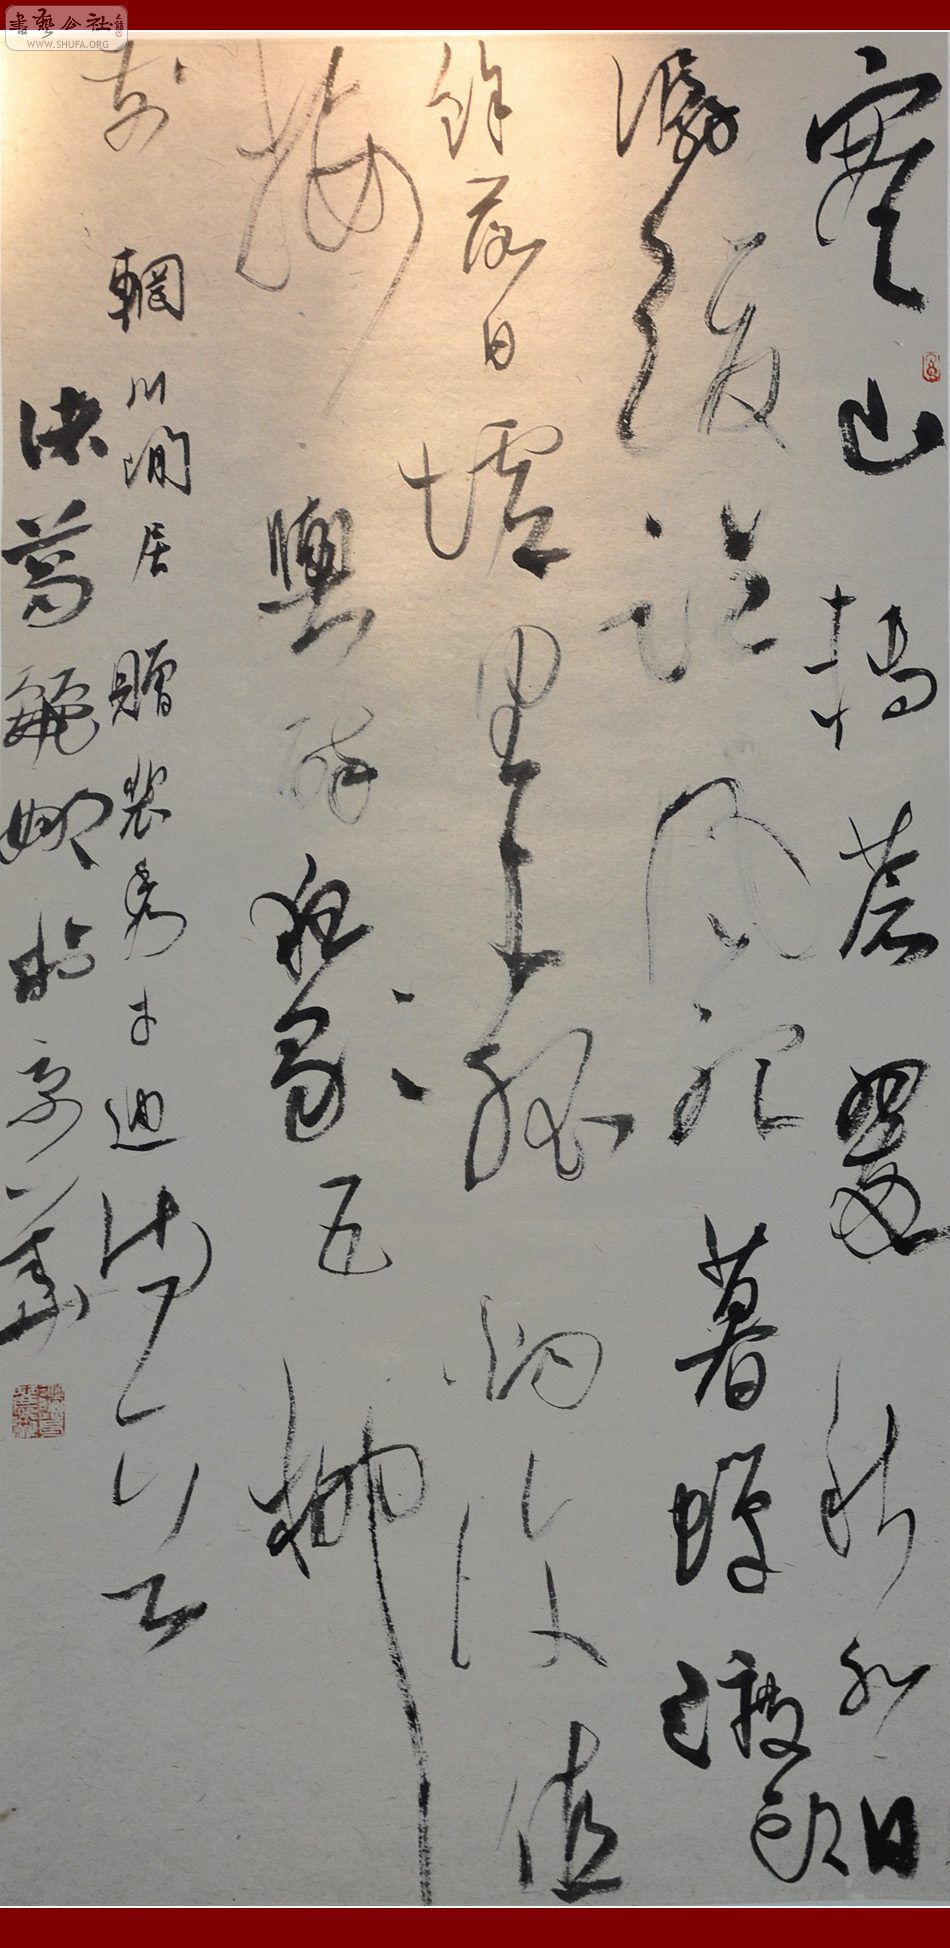 書藝公社
WWW.SHUFA.ORG
寒山轉蒼翠秋水日
潺湲臨風聽暮蟬渡頭
餘落日墟里上孤烟復值
接輿醉狂歌五柳
前
輞川閒居贈裴秀才迪
葛毓娜於京華